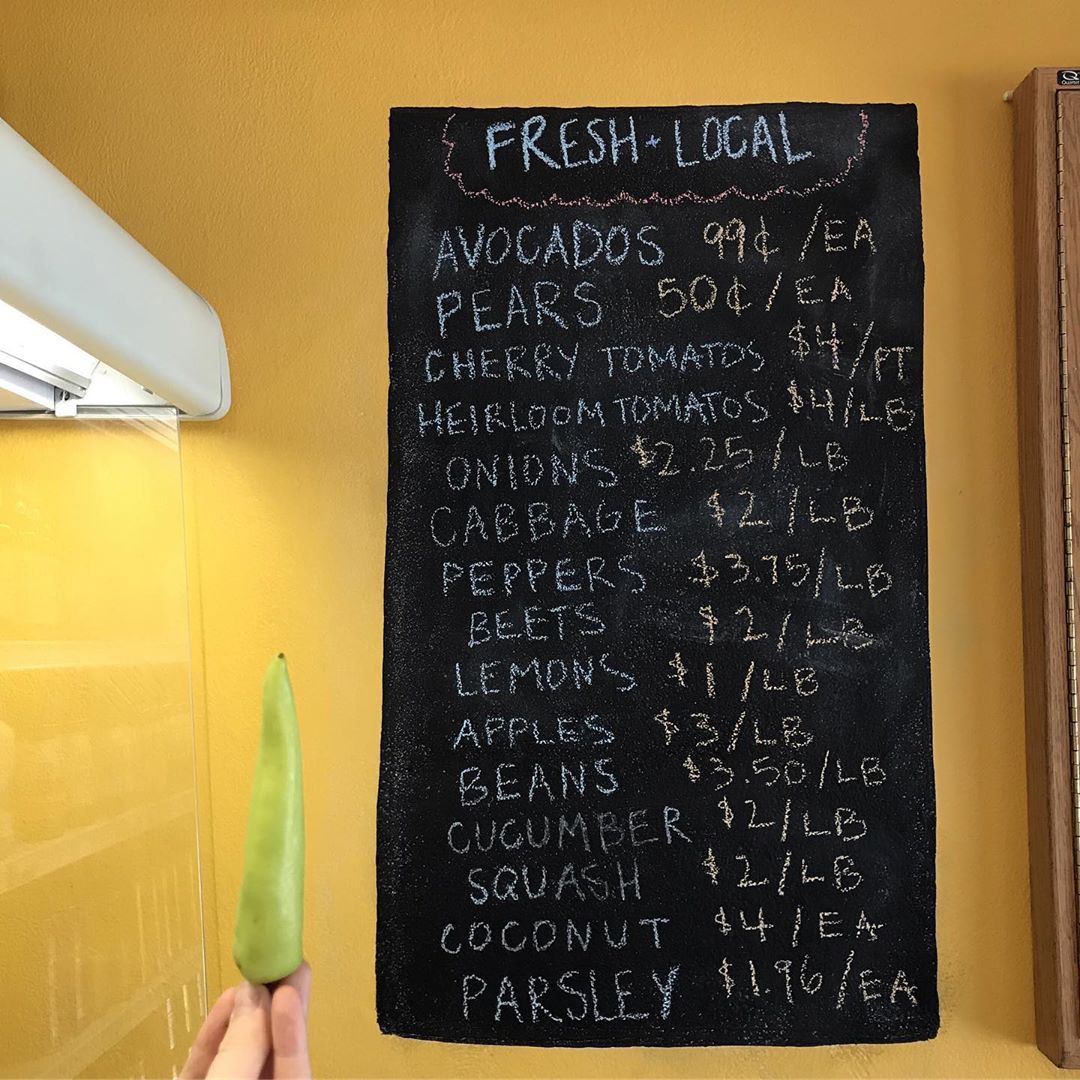 FRESH + LOCAL
AVOCADOS 99¢ /EA
PEARS 50¢/EA
CHERRY TOMATOS $4/PT
HEIRLOOM TOMATOS $4/LB
ONIONS $2.25 /LB
CABBAGE $2/LB
PEPPERS $3.75/LB
BEETS $2/LB
LEMONS $1/LB
APPLES $3/LB
BEANS $3.50/LB
CUCUMBER $2/LB
SQUASH $2/LB
COCONUT $4/EA
PARSLEY $1.96/EA